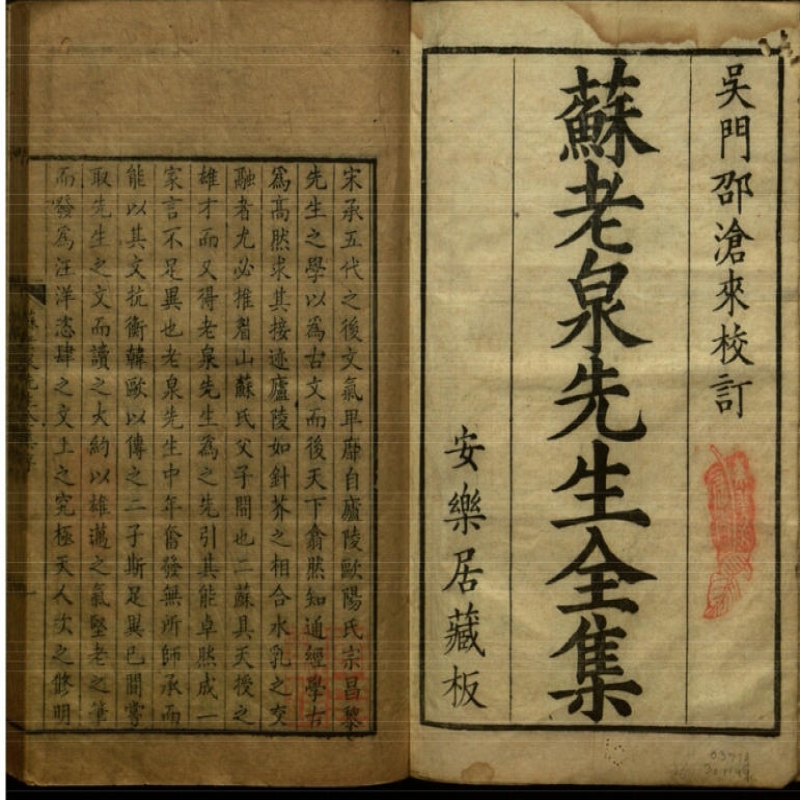 吳門邵滄來校訂
蘇老泉先生全集
安樂居藏板
宋承五代之後文氣卑靡自廬陵歐陽氏宗昌黎
先生之學以為古文而後天下翕然知通經學古
為高然求其接迹廬陵如針芥之相合水乳之交
融者尤必推眉山蘇氏父子間也二蘇具天授之
雄才而又得老泉先生為之先引其能卓然成一
家言不足異也老泉先生中年奮發無所師承而
能以其文抗衡韓歐以傳之二子斯足異已間嘗
取先生之文而讀之大約以雄邁之氣堅老之筆
而發為汪洋恣肆之文上之究極天人次之修明